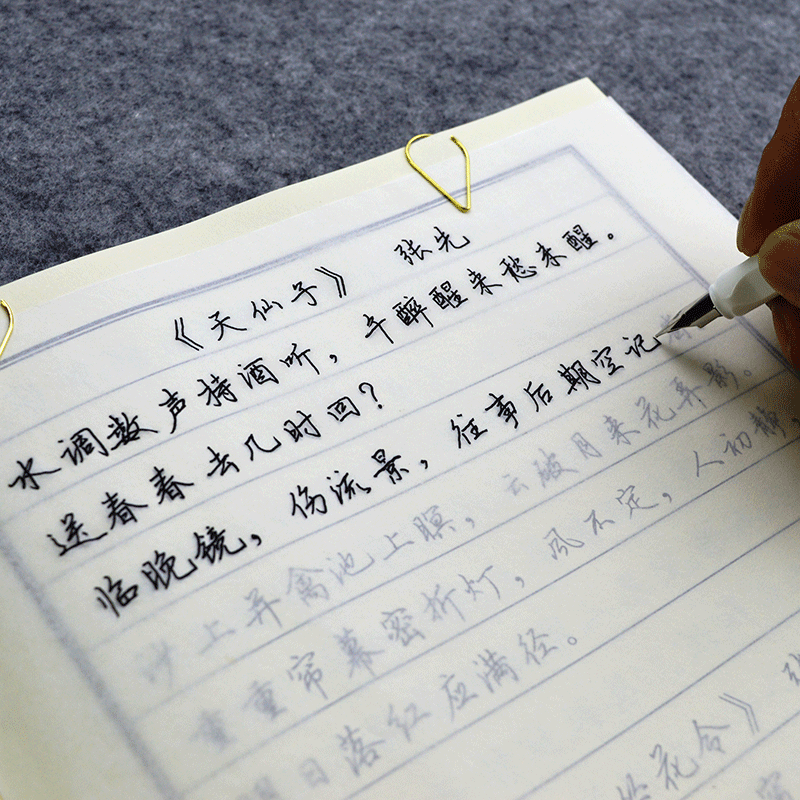 《天仙子》 张先
水调数声持酒听，午醉醒来愁未醒。
送春春去几时回？
临晚镜，伤流景，往事后期空记
沙上并禽池上暝，云破月来花弄影。
重重帘幕密折灯，风不定，人初静，
明日落红应满径。
花令》 张